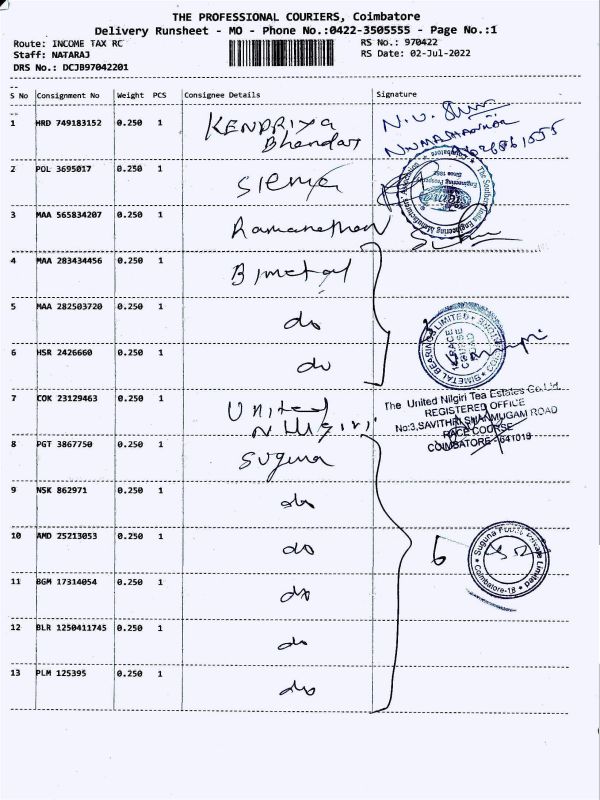 THE PROFESSIONAL COURIERS, Coimbatore
Delivery Runsheet - MO - Phone No.:0422-3505555 - Page No.:1
Route: INCOME TAX RC
RS No.: 970422
Staff: NATARAJ
RS Date: 02-Jul-2022
DRS No.: DCJB97042201
S No Consignment No Weight PCS Consignee Details Signature
1 HRD 749183152 0.250 1 KENDRIYA
Bhandar
2 POL 3695017 0.250 1
3 MAA 565834207 0.250 1 Ramanathan
The Southern India Engineering Manufacturers' Association
Coimbatore
4 MAA 283434456 0.250 1 Bimetal
5 MAA 282503720 0.250 1 do
6 HSR 2426660 0.250 1 do
BIMETAL BEARINGS LIMITED
7 COK 23129463 0.250 1 United
Nilgiri
The United Nilgiri Tea Estates Co.Ltd.
REGISTERED OFFICE
No:3,SAVITHRI SHANMUGAM ROAD
RACE COURSE
COIMBATORE - 641018
8 PGT 3867750 0.250 1 Suguna
9 NSK 862971 0.250 1 do
10 AMD 25213053 0.250 1 do
6
Suguna Foods Private Limited
Coimbatore-18
11 BGM 17314054 0.250 1 do
12 BLR 1250411745 0.250 1 do
13 PLM 125395 0.250 1 do